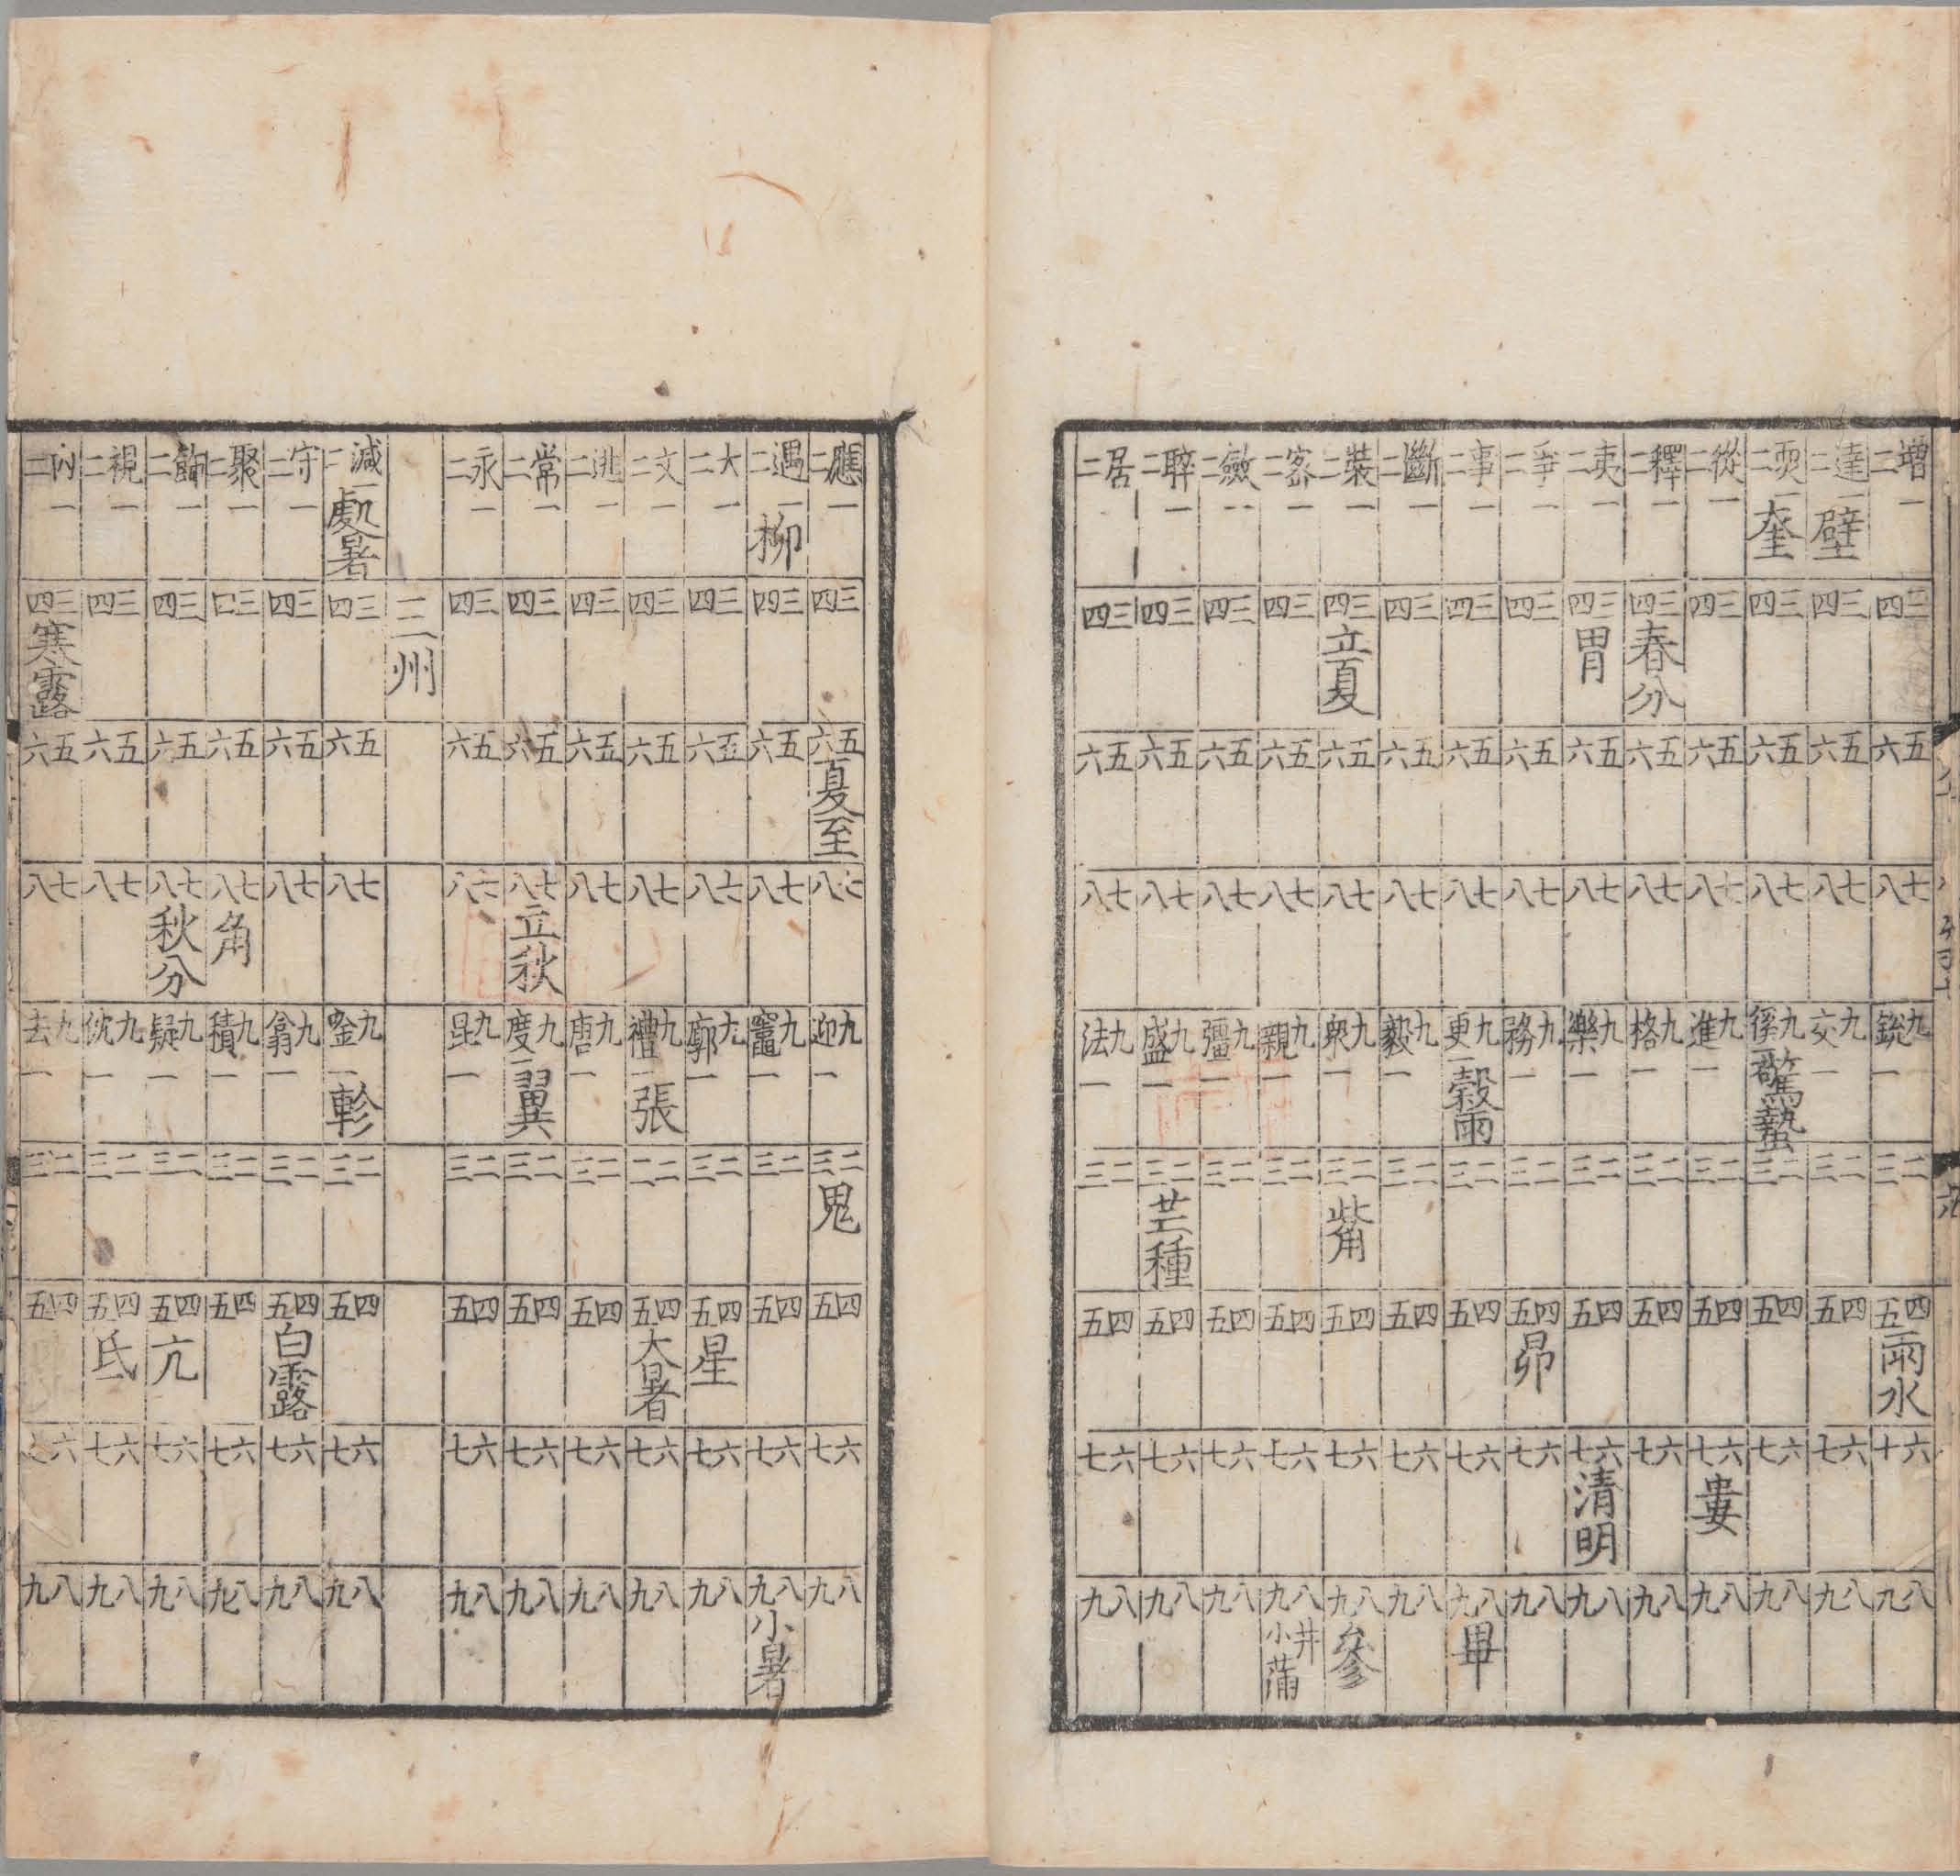 增一二 三四 五六 七八 九銳一 二三 四五雨水 六十 八九
達一二壁 三四 五六 七八 九交一 二三 四五 六七 八九
耎一二奎 三四 五六 七八 九徯一驚蟄 二三 四五 六七 八九
從一二 三四 五六 七八 九進一 二三 四五 六七婁 八九
釋一二 三四春分 五六 七八 九格一 二三 四五 六七 八九
夷一二 三四胃 五六 七八 九樂一 二三 四五 六七清明 八九
爭一二 三四 五六 七八 九務一 二三 四五昴 六七 八九
事一二 三四 五六 七八 九更一穀雨 二三 四五 六七 八九畢
斷一二 三四 五六 七八 九毅一 二三 四五 六七 八九
裝一二 三四立夏 五六 七八 九眾一 二三觜 四五 六七 八九參
密一二 三四 五六 七八 九親一 二三 四五 六七 八九井小蒲
斂一二 三四 五六 七八 九彊一 二三 四五 六七 八九
睟一二 三四 五六 七八 九盛一 二三芒種 四五 六七 八九
居一二 三四 五六 七八 九法一 二三 四五 六七 八九
應一二 三四 五六夏至 七八 九迎一 二三鬼 四五 六七 八九
遇一二柳 三四 五六 七八 九竈一 二三 四五 六七 八九小暑
大一二 三四 五六 七八 九廓一 二三 四五星 六七 八九
文一二 三四 五六 七八 九禮一張 二三 四五大暑 六七 八九
逃一二 三四 五六 七八 九唐一 二三 四五 六七 八九
常一二 三四 五六 七八立秋 九度一翼 二三 四五 六七 八九
永一二 三四 五六 七八 九昆一 二三 四五 六七 八九
三州
減一二處暑 三四 五六 七八 九唫一軫 二三 四五 六七 八九
守一二 三四 五六 七八 九翕一 二三 四五白露 六七 八九
聚一二 三四 五六 七八角 九積一 二三 四五 六七 八九
飾一二 三四 五六 七八秋分 九疑一 二三 四五亢 六七 八九
視一二 三四 五六 七八 九沈一 二三 四五氐 六七 八九
內一二 三四寒露 五六 七八 九去一 二三 四五 六七 八九